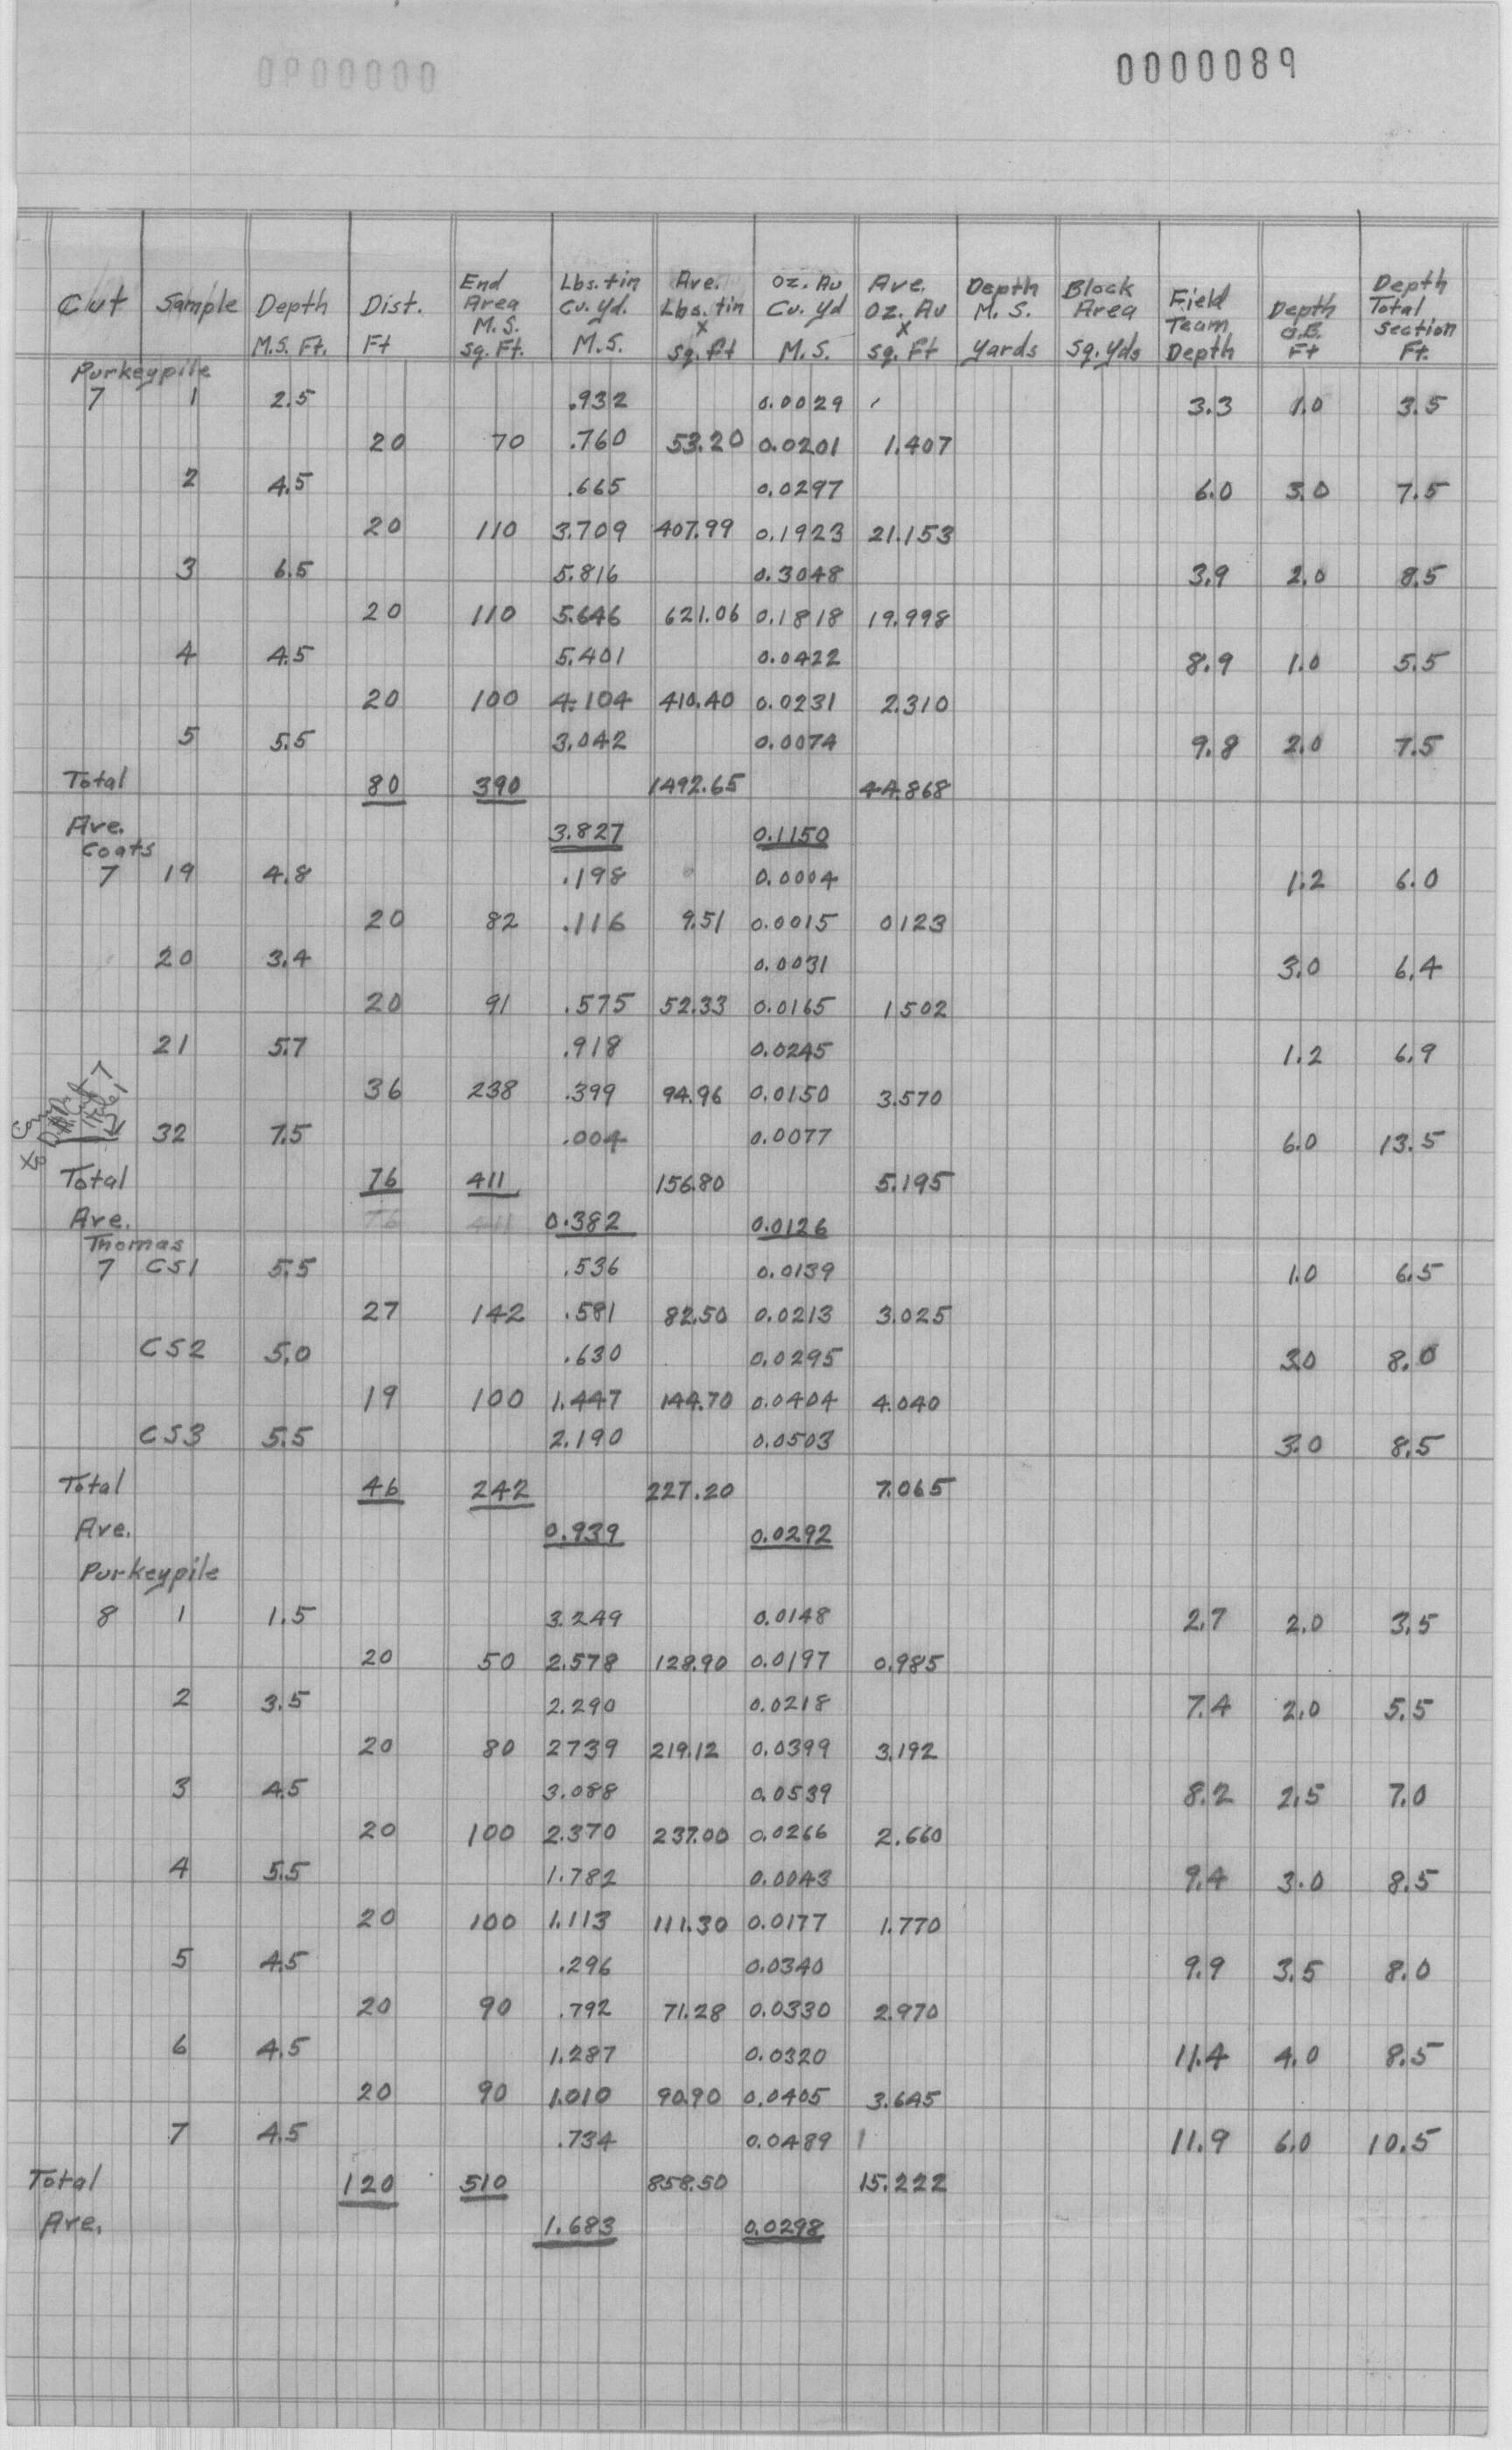 0000089
Cut Sample Depth M.S. Ft. Dist. Ft End Area M.S. Sq. Ft. Lbs. tin Cu. Yd. M.S. Ave. Lbs. tin x Sq. ft Oz. Au Cu. Yd M.S. Ave. Oz. Au x Sq. Ft Depth M.S. Yards Block Area Sq. Yds Field Team Depth Depth O.B. Ft Depth Total Section Ft.
Purkeypile
7 1 2.5 .932 0.0029 3.3 1.0 3.5
20 70 .760 53.20 0.0201 1.407
2 4.5 .665 0.0297 6.0 3.0 7.5
20 110 3.709 407.99 0.1923 21.153
3 6.5 5.816 0.3048 3.9 2.0 8.5
20 110 5.646 621.06 0.1818 19.998
4 4.5 5.401 0.0422 8.9 1.0 5.5
20 100 4.104 410.40 0.0231 2.310
5 5.5 3.042 0.0074 9.8 2.0 7.5
Total 80 390 1492.65 44.868
Ave. 3.827 0.1150
Coats
7 19 4.8 .198 0.0004 1.2 6.0
20 82 .116 9.51 0.0015 0123
20 3.4 0.0031 3.0 6.4
20 91 .575 52.33 0.0165 1502
21 5.7 .918 0.0245 1.2 6.9
36 238 .399 94.96 0.0150 3.570
32 7.5 .004 0.0077 6.0 13.5
Total 76 411 156.80 5.195
Ave. 0.382 0.0126
Thomas
7 CS1 5.5 .536 0.0139 1.0 6.5
27 142 .581 82.50 0.0213 3.025
CS2 5.0 .630 0.0295 3.0 8.0
19 100 1.447 144.70 0.0404 4.040
CS3 5.5 2.190 0.0503 3.0 8.5
Total 46 242 227.20 7.065
Ave. 0.939 0.0292
Purkeypile
8 1 1.5 3.249 0.0148 2.7 2.0 3.5
20 50 2.578 128.90 0.0197 0.985
2 3.5 2.290 0.0218 7.4 2.0 5.5
20 80 2739 219.12 0.0399 3.192
3 4.5 3.088 0.0539 8.2 2.5 7.0
20 100 2.370 237.00 0.0266 2.660
4 5.5 1.782 0.0043 9.4 3.0 8.5
20 100 1.113 111.30 0.0177 1.770
5 4.5 .296 0.0340 9.9 3.5 8.0
20 90 .792 71.28 0.0330 2.970
6 4.5 1.287 0.0320 11.4 4.0 8.5
20 90 1.010 90.90 0.0405 3.645
7 4.5 .734 0.0489 11.9 6.0 10.5
Total 120 510 858.50 15.222
Ave. 1.683 0.0298